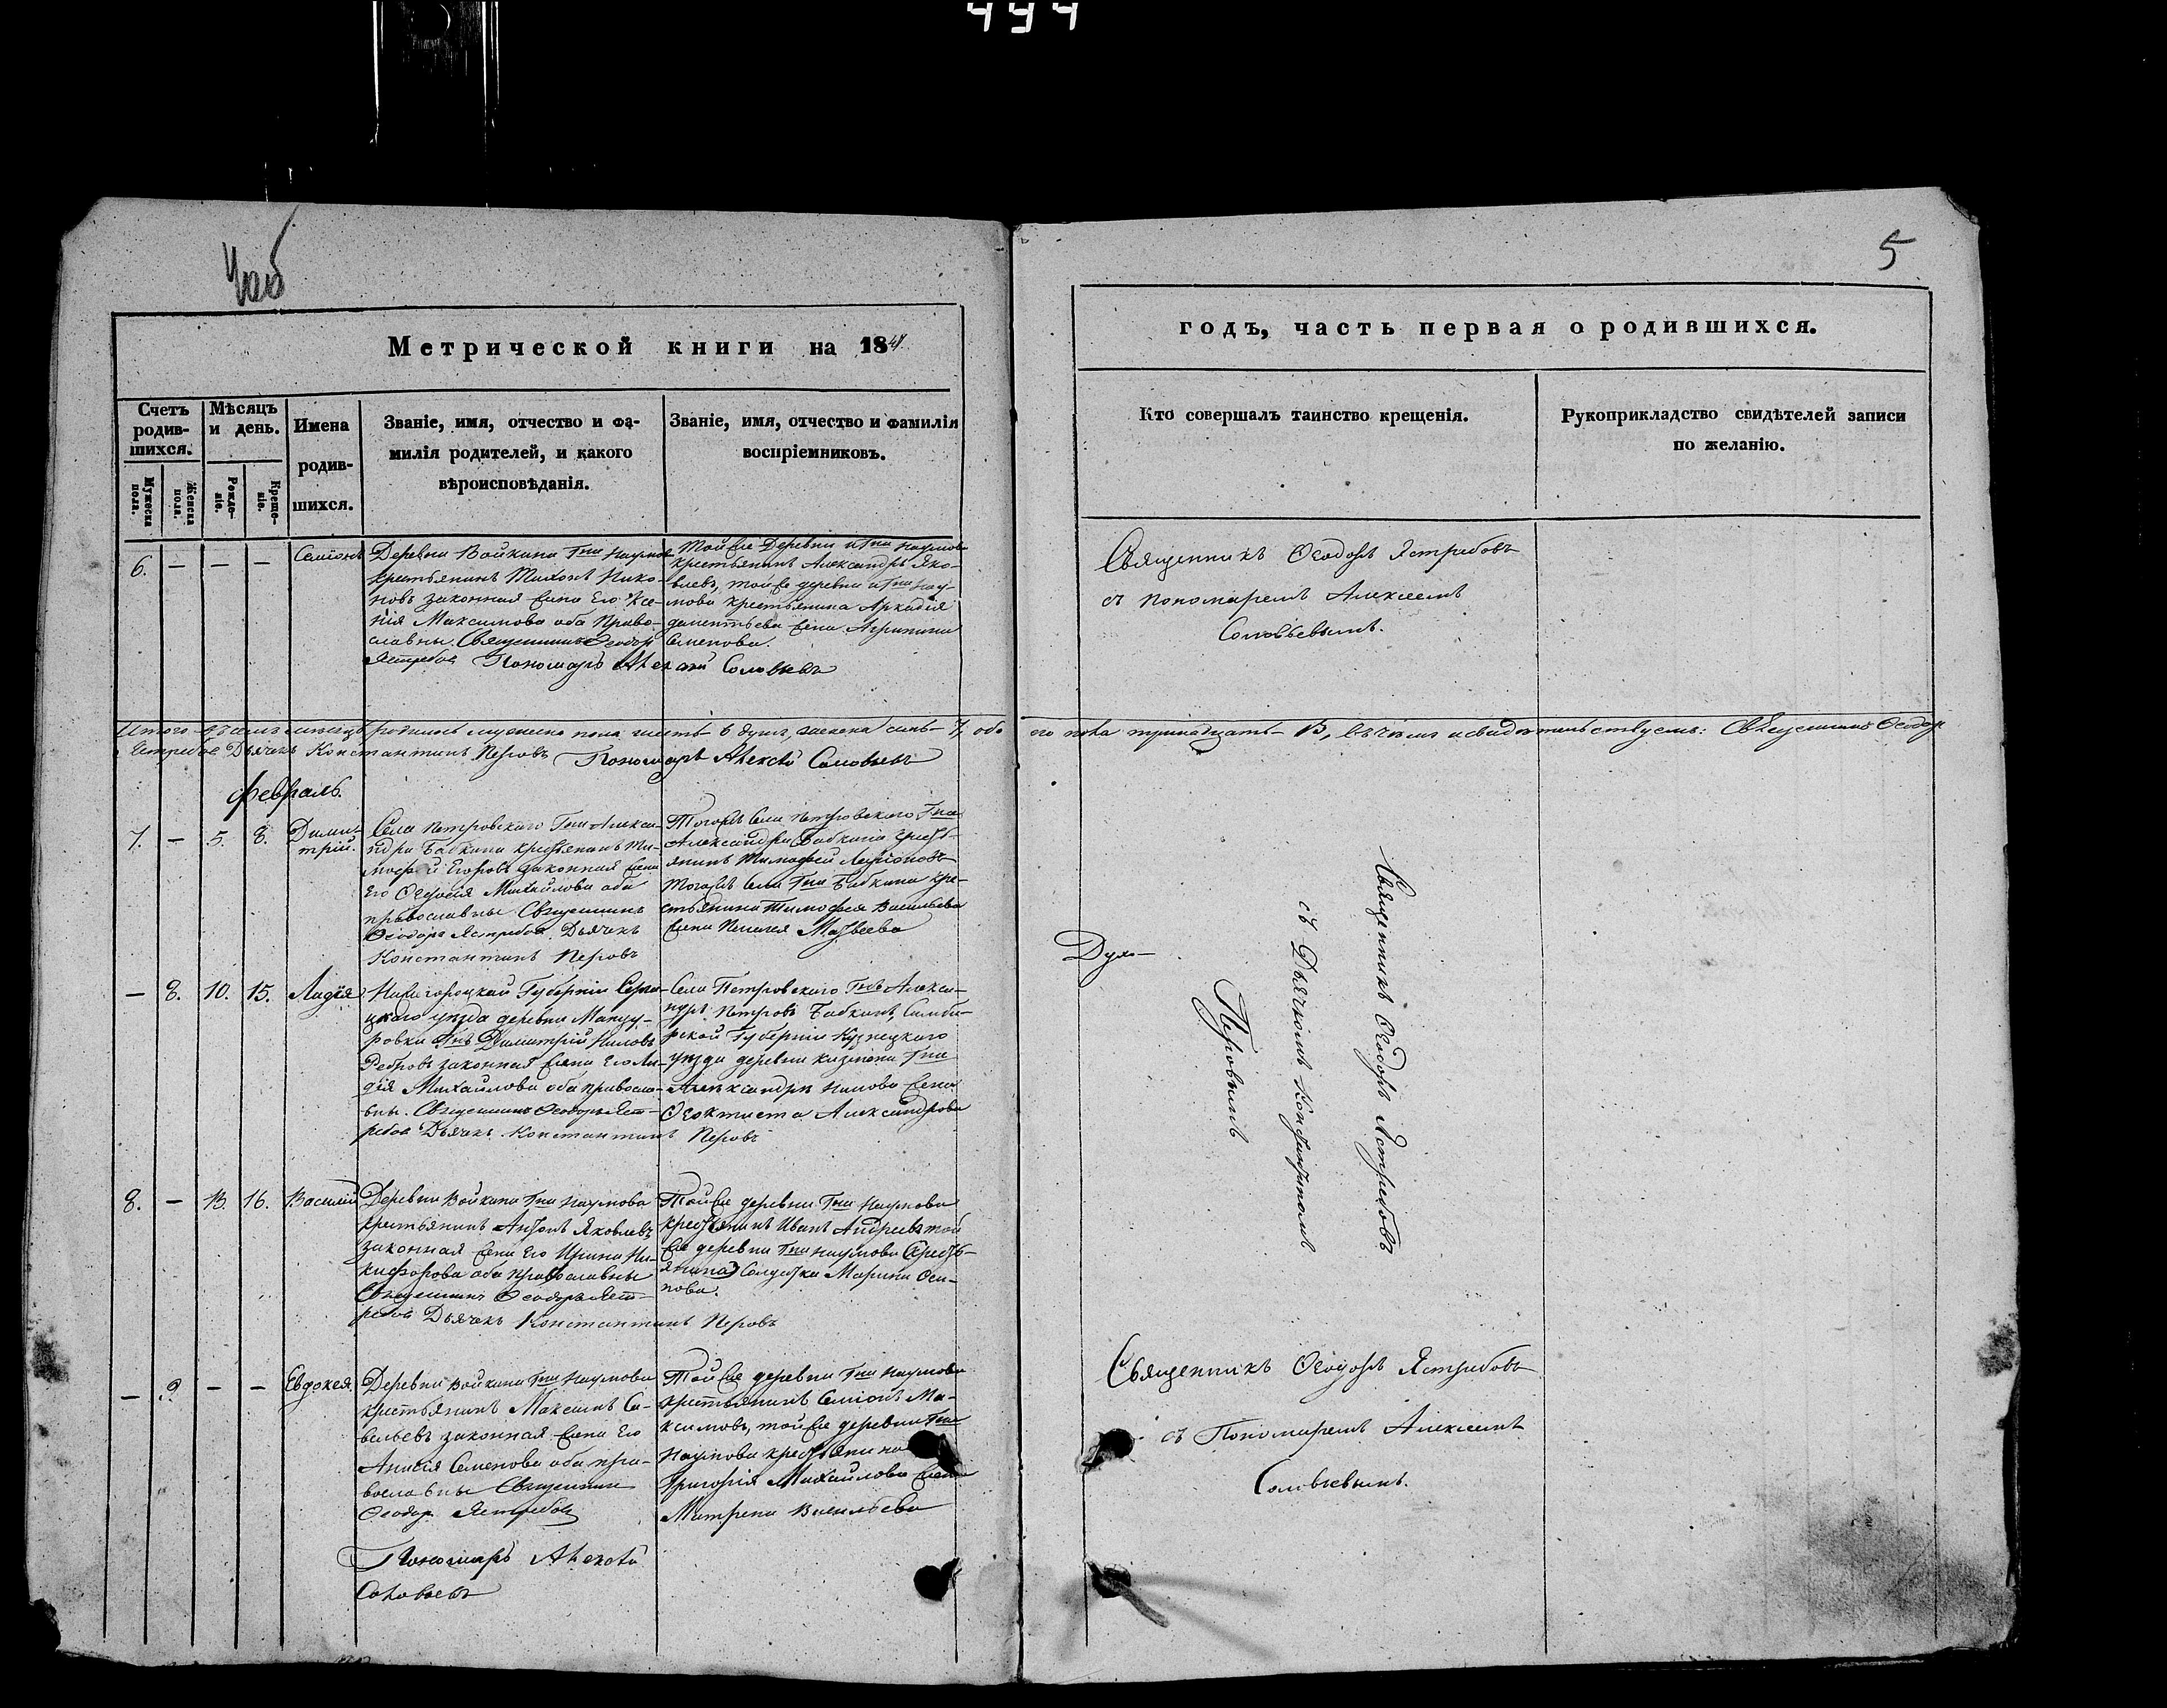 494
406
5
Метрической книги на 184
годъ, часть первая о родившихся.
Счетъ родив-шихся.
Мѣсяцъ и день.
Имена родив-шихся.
Званіе, имя, отчество и фа-
милія родителей, и какого
вѣроисповѣданія.
Званіе, имя, отчество и фамилія
воспріемниковъ.
Кто совершалъ таинство крещенія.
Рукоприкладство свидѣтелей записи
по желанію.
Мужеска пола.
Женска пола.
Рожде-ніе.
Креще-ніе.
6. — — — Семіонъ
Деревни Войкина Гна Наумова
крестьянинъ Тихонъ Нико-
новъ законная жена его Ксе-
нія Максимова оба право-
славны. Священникъ Ѳеодоръ
Ястребов Пономарь Алексѣй Соловьевъ
Той же Деревни Гна Наумова
крестьянинъ Александръ Яко-
влевъ, той же деревни Гна Нау-
мова крестьянина Аркадія
жена Агрипина
Семенова.
Священникъ Ѳеодоръ Ястребовъ
съ пономаремъ Алексеемъ
Соловьевымъ.
Итого въ семъ месяцѣ родилось мужеска пола шесть 6 душъ, женска семь 7, обо
его пола тринадцать 13, въ чемъ и свидѣтельствуемъ: Священникъ Ѳеодоръ
Ястребов Дьячекъ Константинъ Перовъ Пономарь Алексѣй Соловьевъ
Февраль.
7. — 5. 8. Дими-
трій.
Села Петровского Гна Алекса-
ндра Бабкина крестьянинъ Ти-
мофей Егоровъ законная жена
его Михайлова оба
православны Священникъ
Ѳеодоръ Ястребов Дьячекъ
Константинъ Перовъ
Тогожъ Села Петровского Гна
Александра Бабкина кресть-
янинъ Тимофей Ларіоновъ
тогожъ села Гна Бабкина кре-
стьянина Тимофея Васильева
жена Пелагея Матвеева
— 8. 10. 15. Лидія
Нижегороцкой Губерніи Серга-
цкаго уезда деревни
Гнъ Димитрій Ниловъ
Ребровъ законная жена его Ли-
дія Михайлова оба православ-
вны. Священникъ Ѳеодоръ Яст-
ребов Дьячекъ Константинъ Перовъ
Села Петровского Гнъ Алекса-
ндръ Петровъ Бабкинъ, Симби-
рской Губерніи
уезда деревни Гна
Александра Нилова жена
Ѳеоктиста Александрова
Духо
Священникъ Ѳеодоръ Ястребовъ
съ Дьячкомъ Константиномъ
Перовымъ
8. — 13. 16. Василій
Деревни Войкина Гна Наумова
крестьянинъ Антонъ Яковлевъ
законная жена его Ирина Ни-
кифорова оба православны
Священникъ Ѳеодоръ Яст-
ребов Дьячекъ Константинъ Перовъ
Той же деревни Гна Наумова
крестьянинъ Иванъ Андреевъ той
же деревни Гна Наумова (кресть-
янина) Солдатка Марина Оси-
пова.
— 9. — — Евдокея.
Деревни Войкина Гна Наумова
крестьянинъ Максимъ Са-
вельевъ законная жена его
Анисія Семенова оба пра-
вославны Священникъ
Ѳеодоръ Ястребов
Пономарь Алексѣй
Соловьевъ
Той же деревни Гна Наумова
крестьянинъ Семіонъ Ма-
ксимовъ, той же деревни Гна
Наумова крестьянина
Григорія Михайлова жена
Матрена Васильева
Священникъ Ѳеодоръ Ястребовъ
съ Пономаремъ Алексеемъ
Соловьевымъ.